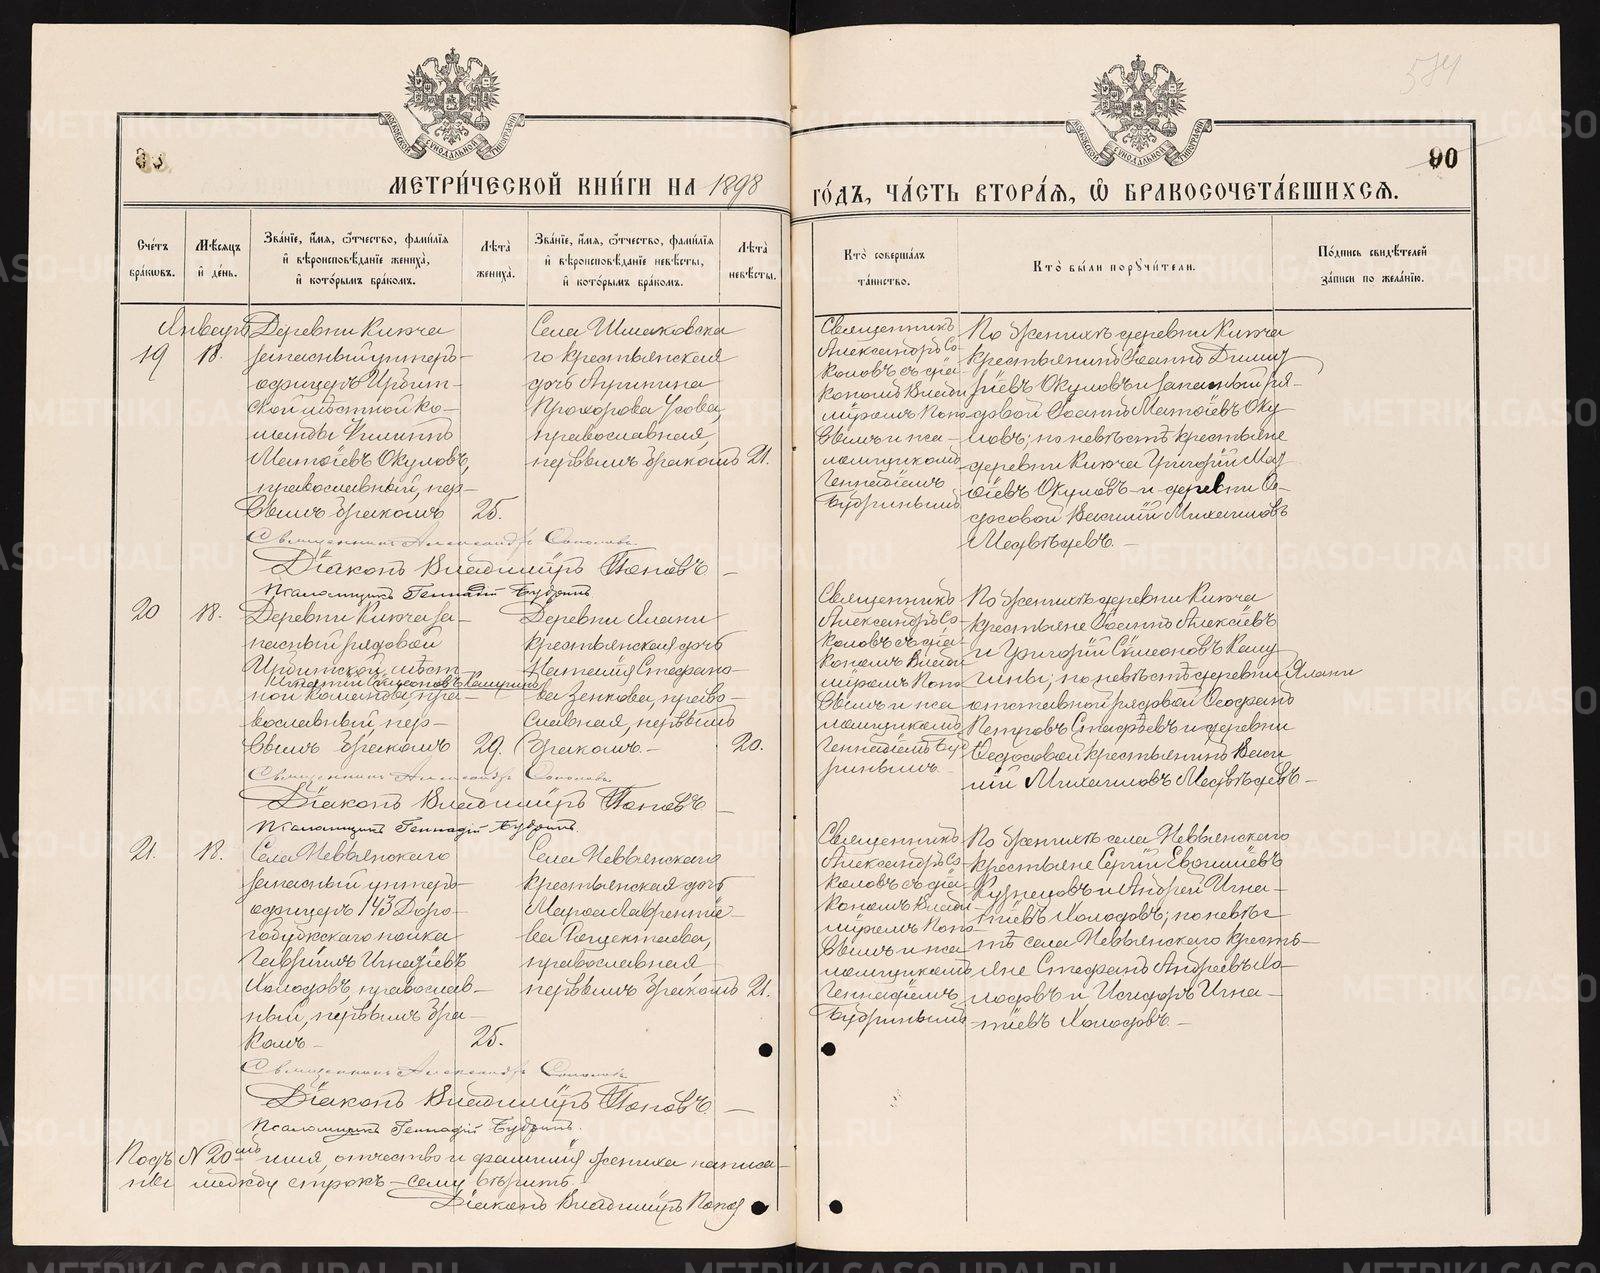 574
МОСКОВСКОЙ СѴНОДАЛЬНОЙ ТИПОГРАФІИ
МОСКОВСКОЙ СѴНОДАЛЬНОЙ ТИПОГРАФІИ
90
МЕТРИ́ЧЕСКОЙ КНИ́ГИ НА 1898
ГО́ДЪ, ЧА́СТЬ ВТОРА́Ѧ, Ѽ БРАКОСОЧЕТА́ВШИХСѦ.
Сче́тъ бра́кѡвъ.
Мѣ́сяцъ и҆ де́нь.
Зва́нїе, и҆́мѧ, ѻ҆́тчество, фами́лїѧ и҆ вѣроисповѣ́данїе жениха̀, и҆ кото́рымъ бра́комъ.
Лѣ́та жениха̀.
Зва́нїе, и҆́мѧ, ѻ҆́тчество, фами́лїѧ и҆ вѣроисповѣ́данїе невѣ́сты, и҆ кото́рымъ бра́комъ.
Лѣ́та невѣ́сты.
Кто̀ соверша́лъ та́инство.
Кто̀ бы́ли порꙋчи́тели.
По́дпись свидѣ́телей за́писи по жела́нїю.
Январь
19
18.
Деревни Ключа
запасный унтеръ-
офицеръ Ирбит-
ской мѣстной ко-
манды Филиппъ
Матѳіевъ Окуловъ,
православный, пер-
вымъ бракомъ
25.
Села Шмаковска
го крестьянская
дочь Агрипина
Прохорова Усова,
православная,
первымъ бракомъ
21.
Священникъ
Александръ Со-
коловъ съ діа-
кономъ Влади
міромъ Попо
вымъ и пса-
ломщикомъ
Геннадіемъ
Будринымъ
По женихѣ деревни Ключа
крестьянинъ Іоаннъ Димит
ріевъ Окуловъ и запасный ря-
довой Іоаннъ Матѳіевъ Оку
ловъ; по невѣстѣ крестьяне
деревни Ключа Григорій Мат
ѳіевъ Окуловъ и деревни Ѳе-
досовой Василій Михаиловъ
Медвѣдевъ. -
Священникъ Александръ Соколовъ.
Діаконъ Владиміръ Поповъ -
Псаломщикъ Геннадій Будринъ
20
18.
Деревни Ключа за-
пасный рядовой
Ирбитской мѣст
Игнатій Симеоновъ Кашутинъ
ной команды, пра-
вославный, пер-
вымъ бракомъ
29.
Деревни Ялани
крестьянская дочь
Наталія Стефано-
ва Зенкова, право-
славная, первымъ
бракомъ. -
20.
Священникъ
Александръ Со-
коловъ съ діа-
кономъ Влади
міромъ Попо
вымъ и пса
ломщикомъ
Геннадіемъ Буд
ринымъ.
По женихѣ деревни Ключа
крестьяне Іоаннъ Алексіевъ
и Григорій Симеоновъ Кашу
тины; по невѣстѣ деревни Ялани
отставной рядовой Ѳеофанъ
Петровъ и деревни
Ѳедосовой крестьянинъ Васи
лій Михаиловъ Медвѣдевъ -
Священникъ Александръ Соколовъ
Діаконъ Владиміръ Поповъ -
Псаломщикъ Геннадій Будринъ.
21.
18.
Села Невьянскаго
запасный унтеръ-
офицеръ 143 Доро-
гобужскаго полка
Гавріилъ Игнатіевъ
Холодовъ, православ-
ный, первымъ бра-
комъ -
25.
Села Невьянскаго
крестьянская дочь
Марѳа Лаврентіе-
ва Ращектаева,
православная
первымъ бракомъ
21.
Священникъ
Александръ Со
коловъ съ діа-
кономъ Влади
міромъ Попо
вымъ и пса
ломщикомъ
Геннадіемъ
Будринымъ
По женихѣ села Невьянскаго
крестьяне Сергій Евѳиміевъ
Кузнецовъ и Андрей Игна-
тіевъ Холодовъ; по невѣс
тѣ села Невьянскаго кресть-
яне Стефанъ Андреевъ Хо-
лодовъ и Исидоръ Игна-
тіевъ Холодовъ. -
Священникъ Александръ Соколовъ
Діаконъ Владиміръ Поповъ. -
Псаломщикъ Геннадій Будринъ.
Подъ № 20мъ имя, отчество и фамилія жениха написа-
ны между строкъ - сему вѣрить.
Діаконъ Владиміръ Попов
METRIKI.GASO-URAL.RU